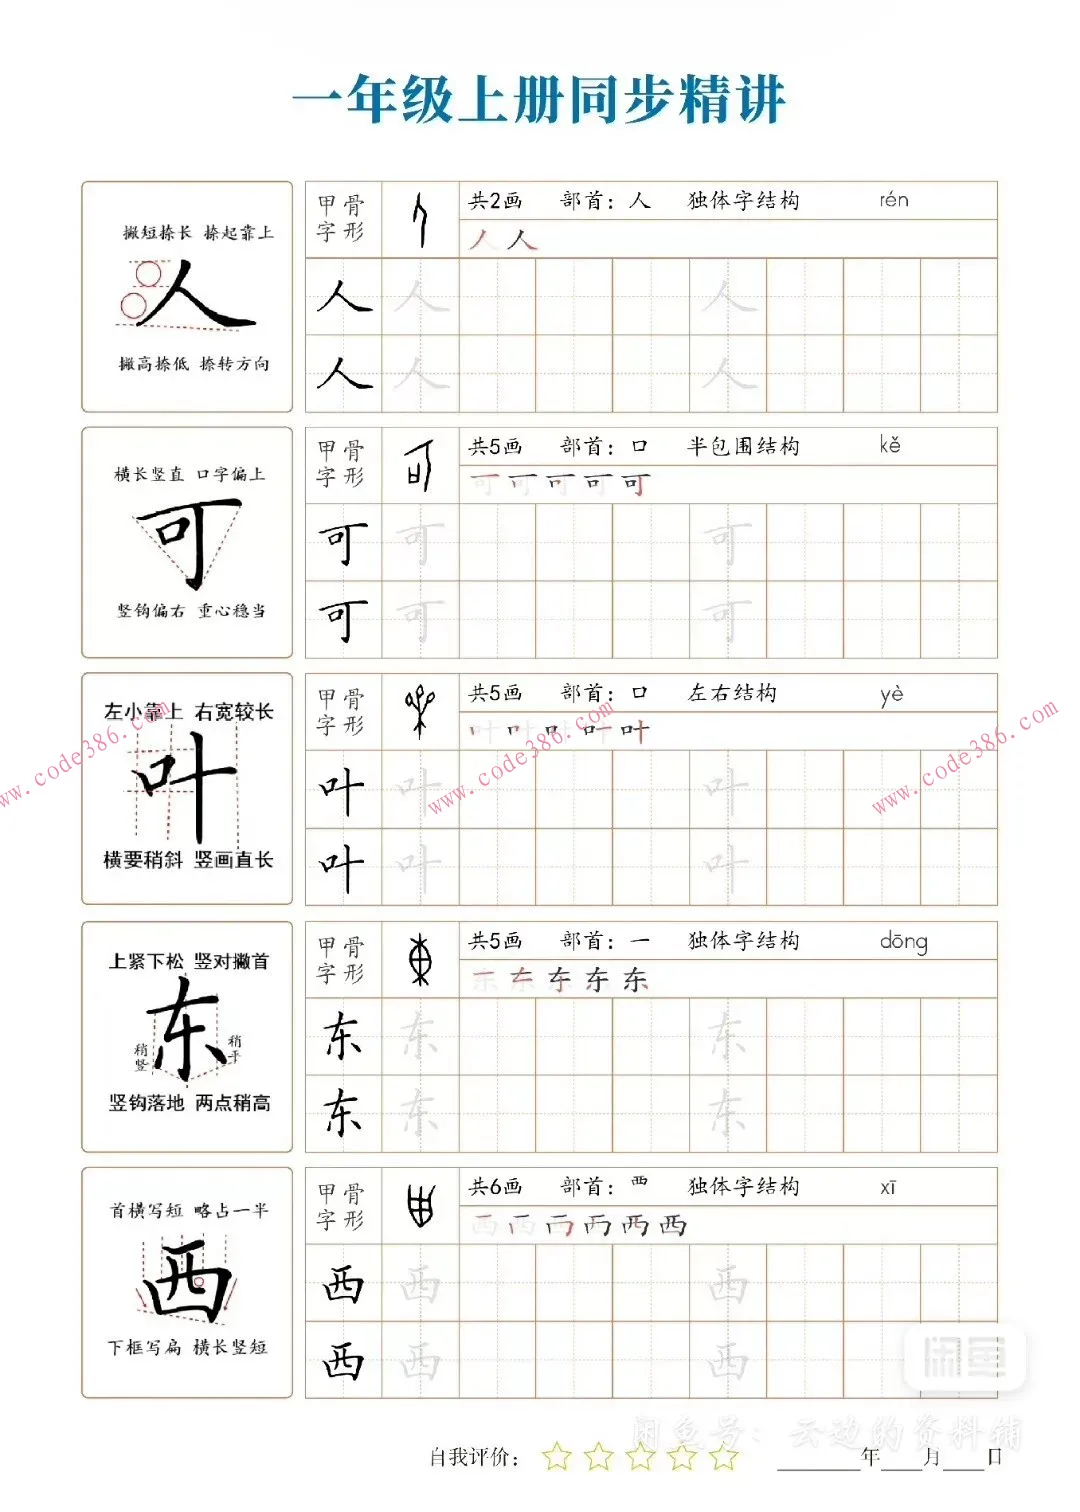 一年级上册同步精讲
撇短捺长 捺起靠上
人
撇高捺低 捺转方向
甲骨字形
共2画 部首：人 独体字结构 rén
人 人
人 人 人
人 人 人
横长竖直 口字偏上
可
竖钩偏右 重心稳当
甲骨字形
共5画 部首：口 半包围结构 kě
可 可 可 可 可
可 可 可
可 可 可
左小靠上 右宽较长
叶
横要稍斜 竖画直长
甲骨字形
共5画 部首：口 左右结构 yè
叶 叶 叶 叶 叶
叶 叶 叶
叶 叶 叶
www.code386.com
www.code386.com
www.code386.com
上紧下松 竖对撇首
东
稍竖
稍平
竖钩落地 两点稍高
甲骨字形
共5画 部首：一 独体字结构 dōng
东 东 东 东 东
东 东 东
东 东 东
首横写短 略占一半
西
下框写扁 横长竖短
甲骨字形
共6画 部首：覀 独体字结构 xī
西 西 西 西 西 西
西 西 西
西 西 西
闲鱼
闲鱼号：云边的资料铺
自我评价：
年 月 日